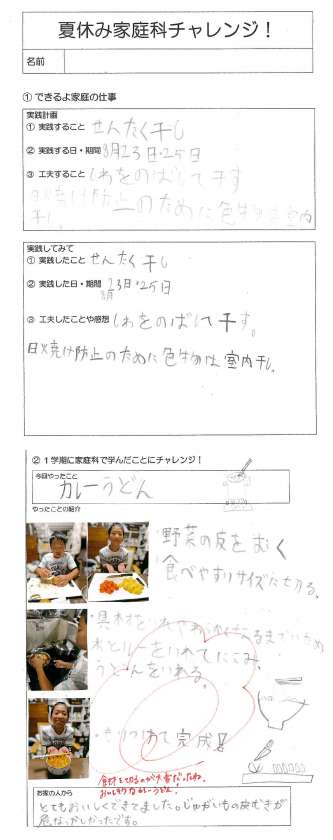 夏休み家庭科チャレンジ！
名前
① できるよ家庭の仕事
実践計画
① 実践すること せんたく干し
② 実践する日・期間 8月23日・25日
③ 工夫すること しわをのばして干す
日焼け防止のために色物は室内
干し。
実践してみて
① 実践したこと せんたく干し
② 実践した日・期間 8月23日・25日
③ 工夫したことや感想 しわをのばして干す。
日焼け防止のために色物は室内干し。
② １学期に家庭科で学んだことにチャレンジ！
今回やったこと
カレーうどん
やったことの紹介
・野菜の皮をむく
食べやすいサイズに切る。
・具材を
水とルーをいれてにこみ、
うどんをいれる。
・もりつけて完成!!
食材を切るのが大変だったね。
おいしそうなカレーうどん。
お家の人から
とてもおいしくできてました。じゃがいもの皮むきが
危なっかしかったです。